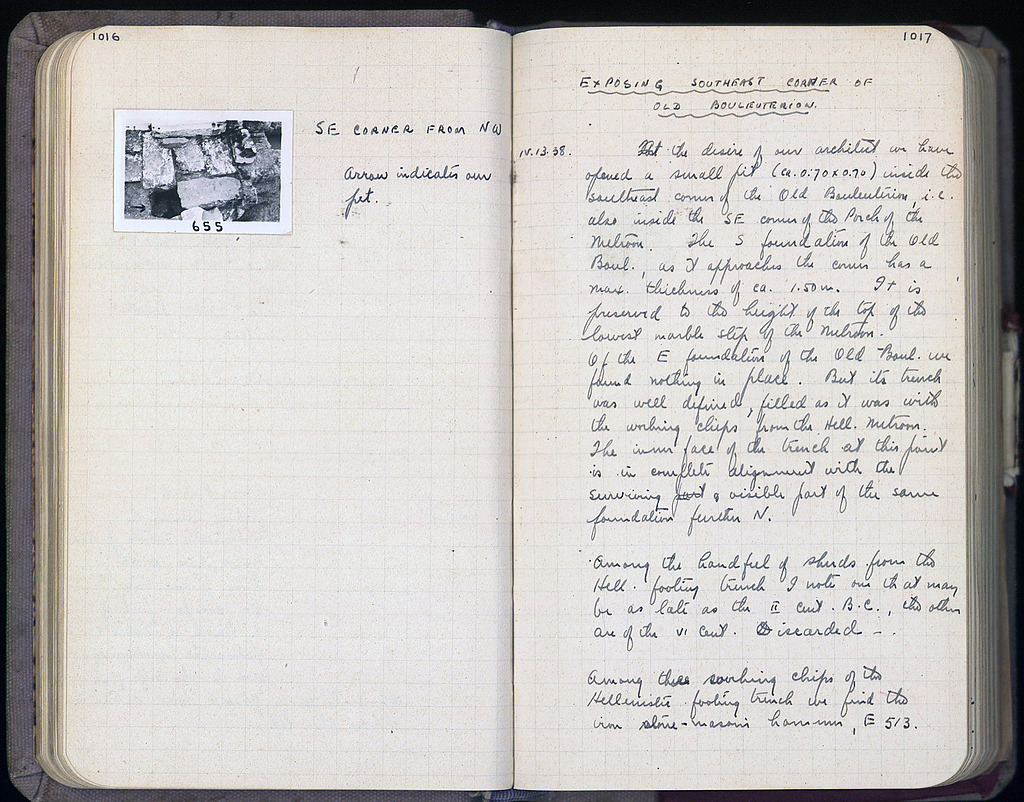 1016
SE CORNER FROM NW
Arrow indicates our
pit.
655
1017
EXPOSING SOUTHEAST CORNER OF
OLD BOULEUTERION.
IV.13.38.
At the desire of our architect we have
opened a small pit (ca. 0.70 x 0.70) inside the
southeast corner of the Old Bouleuterion, i.e.
also inside the SE corner of the Porch of the
Metroon. The S foundation of the Old
Boul., as it approaches the corner has a
max. thickness of ca. 1.50 m. It is
preserved to the height of the top of the
lowest marble step of the Metroon.
Of the E foundation of the Old Boul. we
found nothing in place. But its trench
was well defined, filled as it was with
the working chips from the Hell. Metroon.
The inner face of the trench at this point
is in complete alignment with the
surviving part & visible part of the same
foundation further N.
Among the handful of sherds from the
Hell. footing trench I note one that may
be as late as the II cent. B.C., the others
are of the VI cent. Discarded -.
Among these working chips of the
Hellenistic footing trench we find the
iron stone-mason's hammer, E 513.